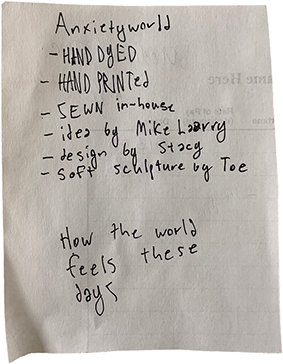 Anxietyworld
- HAND DYED
- HAND PRINTED
- SEWN in-house
- idea by Mike Laarry
- design by Stacy
- soft sculpture by Toe
How the world
feels these
days